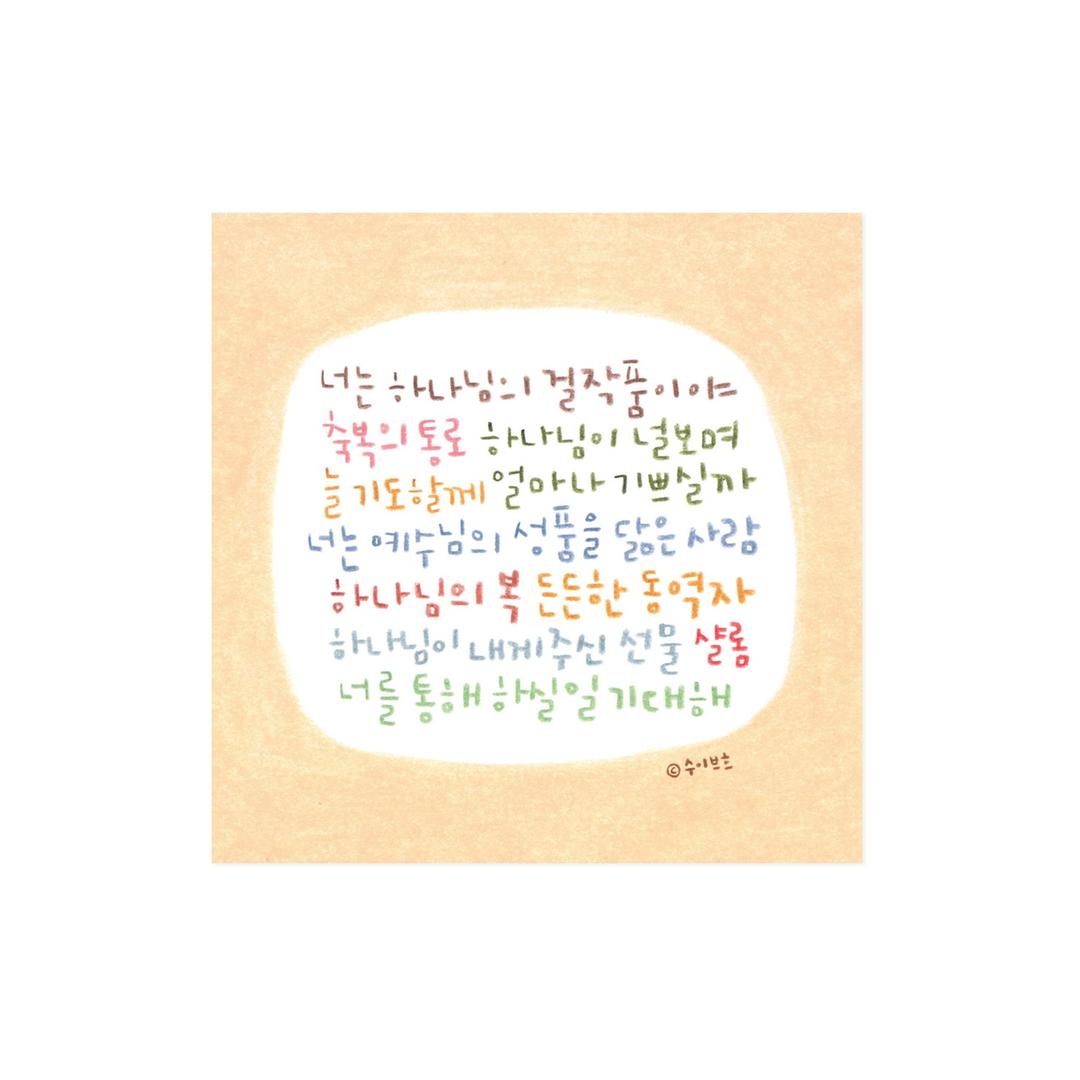 너는 하나님의 걸작품이야
축복의 통로 하나님이 널보며
늘 기도할께 얼마나 기쁘실까
너는 예수님의 성품을 닮은 사람
하나님의 복 든든한 동역자
하나님이 내게주신 선물 샬롬
너를 통해 하실일 기대해
© 수이브흐